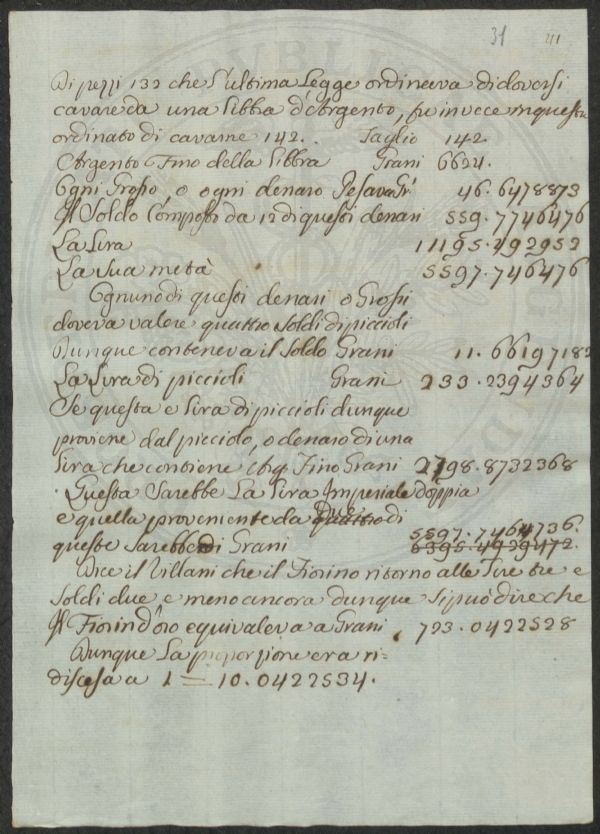 31
Di pezzi 132 che l'ultima Legge ordinava di doversi
cavare da una libbra d'Argento, fu invece in questa
ordinato di cavarne 142. Taglio 142.
Argento Fino della libbra Grani 6624.
Ogni Grosso o ogni denaro Pesava Gr.i 46.6478873
Il Soldo Composto da 12 di questi denari 559.7746476
La Lira 11195.492952
La sua metà 5597.746476
Ognuno di questi denari o Grossi
doveva valere quattro Soldi di piccioli
Dunque conteneva il Soldo Grani 11.6619718
La Lira di piccioli Grani 233.2394364
Se questa è Lira di piccioli dunque
proviene dal picciolo, o denaro di una
Lira che contiene Arg. Fino Grani 2798.8732368
Questa Sarebbe La Lira Imperiale doppia
e quella proveniente da due di
queste Sarebbe di Grani 5597.7464736.
6395.4929472.
Dice il Villani che il Fiorino ritornò alle Lire tre e
Soldi due e meno ancora dunque si può dire che
Il Fiorin d'oro equivaleva a Grani 723.0422528
Dunque La proporzione era ri=
discesa a 1 = 10.0422534.